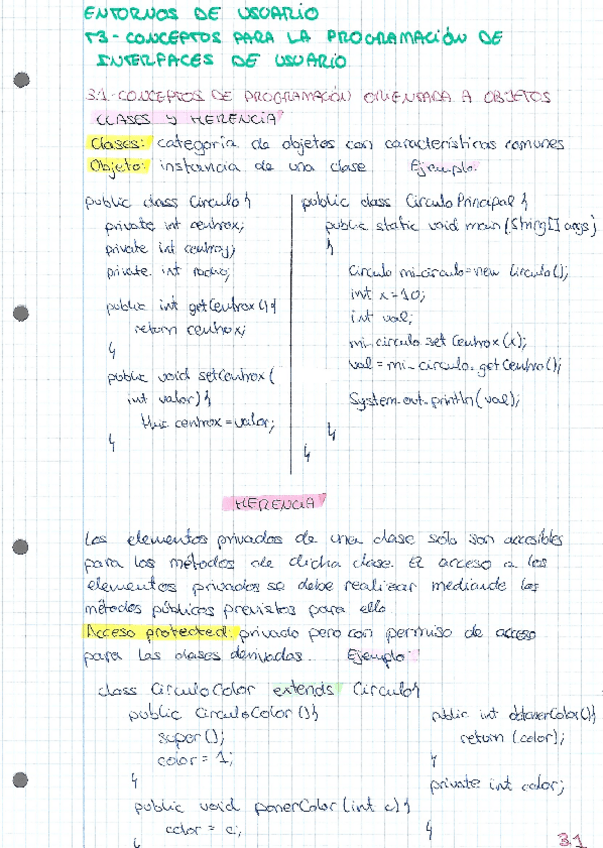 ENTORNOS DE USUARIO
T3-CONCEPTOS PARA LA PROGRAMACIÓN DE
INTERFACES DE USUARIO
3.1-CONCEPTOS DE PROGRAMACIÓN ORIENTADA A OBJETOS
CLASES Y HERENCIA
Clases: categoría de objetos con características comunes
Objeto: instancia de una clase Ejemplo:
public class Circulo {
private int centrox;
private int centroy;
private int radio;
public int getCentrox () {
return centrox;
}
public void setCentrox (
int valor) {
this.centrox = valor;
}
public class CirculoPrincipal {
public static void main (String [] args)
{
Circulo mi_circulo = new Circulo ();
int x = 10;
int val;
mi_circulo.setCentrox (x);
val = mi_circulo.getCentro ();
System.out.println (val);
}
}
HERENCIA
Los elementos privados de una clase sólo son accesibles
para los métodos de dicha clase. El acceso a los
elementos privados se debe realizar mediante los
métodos públicos previstos para ello
Acceso protected: privado pero con permiso de acceso
para las clases derivadas. Ejemplo:
class CirculoColor extends Circulo {
public CirculoColor () {
super ();
color = 1;
}
public void ponerColor (int c) {
color = c;
}
public int obtenerColor () {
return (color);
}
private int color;
}
3.1